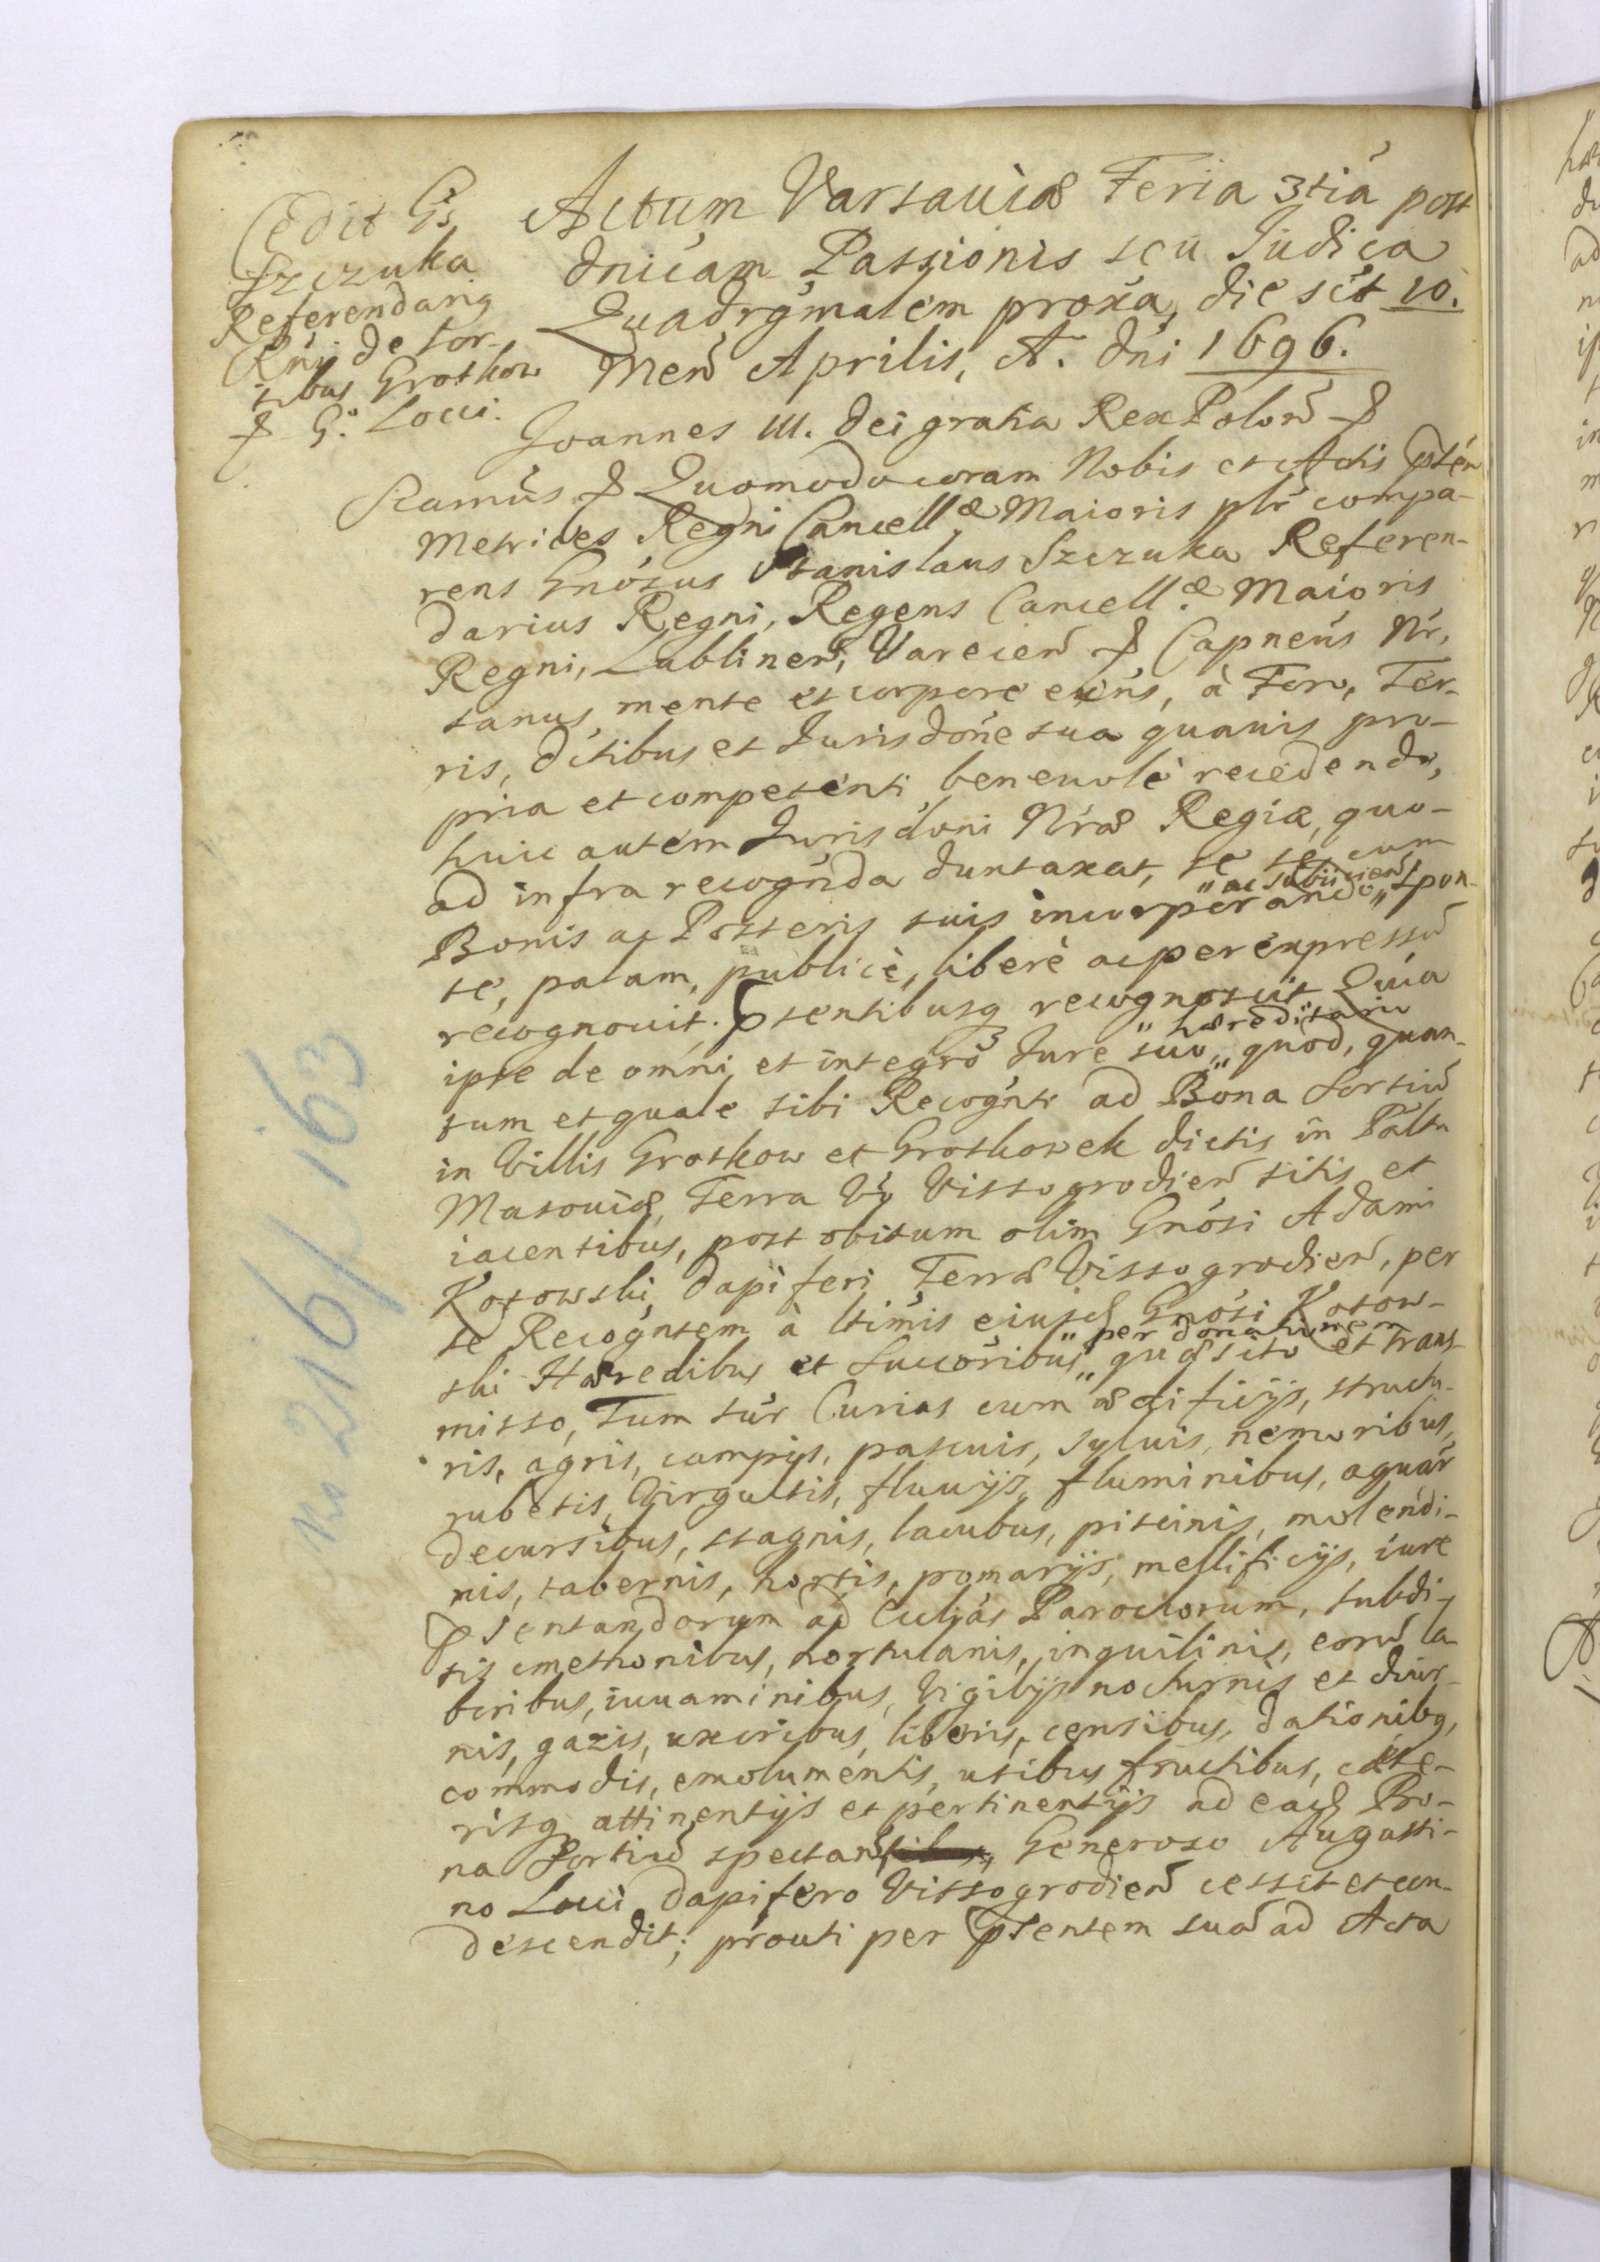 Cedit Gs
Szczuka
Referendariq
Rni de sor-
tibus Groskow
G. Locci.
Actum Varsaviæ Feria 3tia post
dnicam Passionis seu Judica
Quadrgmalem proxa, die sct 10.
Men Aprilis, A. dni 1696.
Joannes III. Dei gratia Rex Polon
Quomodo coram Nobis et Actis pten
Metrices Regni Cancellæ Maioris plr compa-
rens Gnosus Stanislaus Szczuka Referen-
darius Regni, Regens Cancellæ Maioris
Regni, Lublinen, Varecien Capneus Nr,
sanus mente et corpore exens, à Foro, Ter-
ris, dctibus et Jurisdone sua quavis pro-
pria et competenti benevolè recedendo,
huic autem Jurisdoni Nræ Regiæ, quo-
ad infra recognda duntaxat, se se cum
Bonis ac Posteris suis incorporando „ac subiicien„ spon-
te, palam, publicè, liberè ac per expressu
recognovit. Psentibusq recognoscit Quia
ipse de omni et integro Jure suo „hæreditario„ quod, quan-
tum et quale sibi Recognti ad Bona Sortiu
in Villis Groskow et Groskowek dictis in Paltu
Masoviæ, Terra Vissogrodien sitis et
iacentibus, post obitum olim Gnosi Adami
Kossowski, dapiferi Terræ Vissogrodien, per
se Recogntem à ltimis eiusd Gnosi Kosow-
ski Hæredibus et Succoribus „per donationem„ quæsito et trans-
misso, tum sur Curias cum ædificijs, structu-
ris, agris, campis, pascuis, sylvis, nemoribus,
rubetis, Virgultis, fluvijs, fluminibus, aquar
decursibus, stagnis, lacubus, piscinis, molendi-
nis, tabernis, hortis, pomarijs, mellificijs, iure
Psentandorum ad Eccljas Parochorum, subdi-
tis cmethonibus, hortulanis, inquilinis, eoru la-
boribus, iuvaminibus, Vigilijs nocturnis et diur-
nis, gazis, uxoribus, liberis, censibus, dationibq,
commodis, emolumentis, usibus fructibus, cæte-
risq attinentijs et pertinentijs ad ead Bo-
na Sortiu spectan Generoso Augusti-
no Locci Dapifero Vissogrodien cessit et con-
descendit; prouti per psentem sua ad Acta
No 216/163